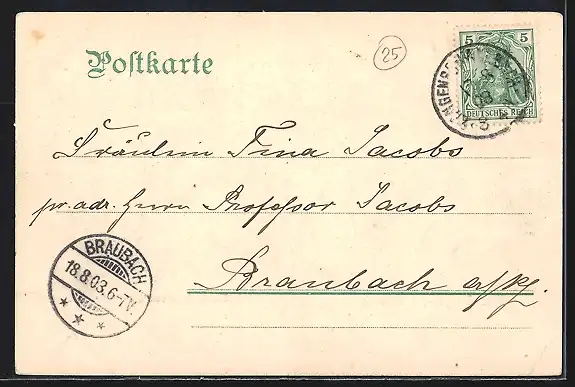 Postkarte
25
5 5
DEUTSCHES REICH
Fräulein Tina Jacobs
pr. adr. Herrn Professor Jacobs
Braubach a/Rh.
BRAUBACH
18.8.03.6-7V.